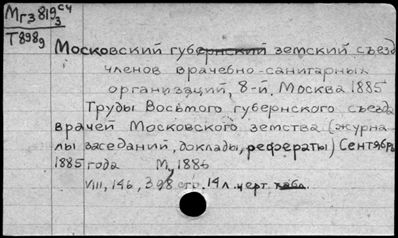 Мгз 819 сч 3
Т8989
Московский губернский земский съезд
членов врачебно-санитарных
организаций, 8-й. Москва 1885
Труды Восьмого губернского съезда
врачей Московского земства (журна-
лы заседаний, доклады, рефераты) Сентябрь
1885 года М, 1886
VIII, 146, 398 стр. 14 л. черт. табл.